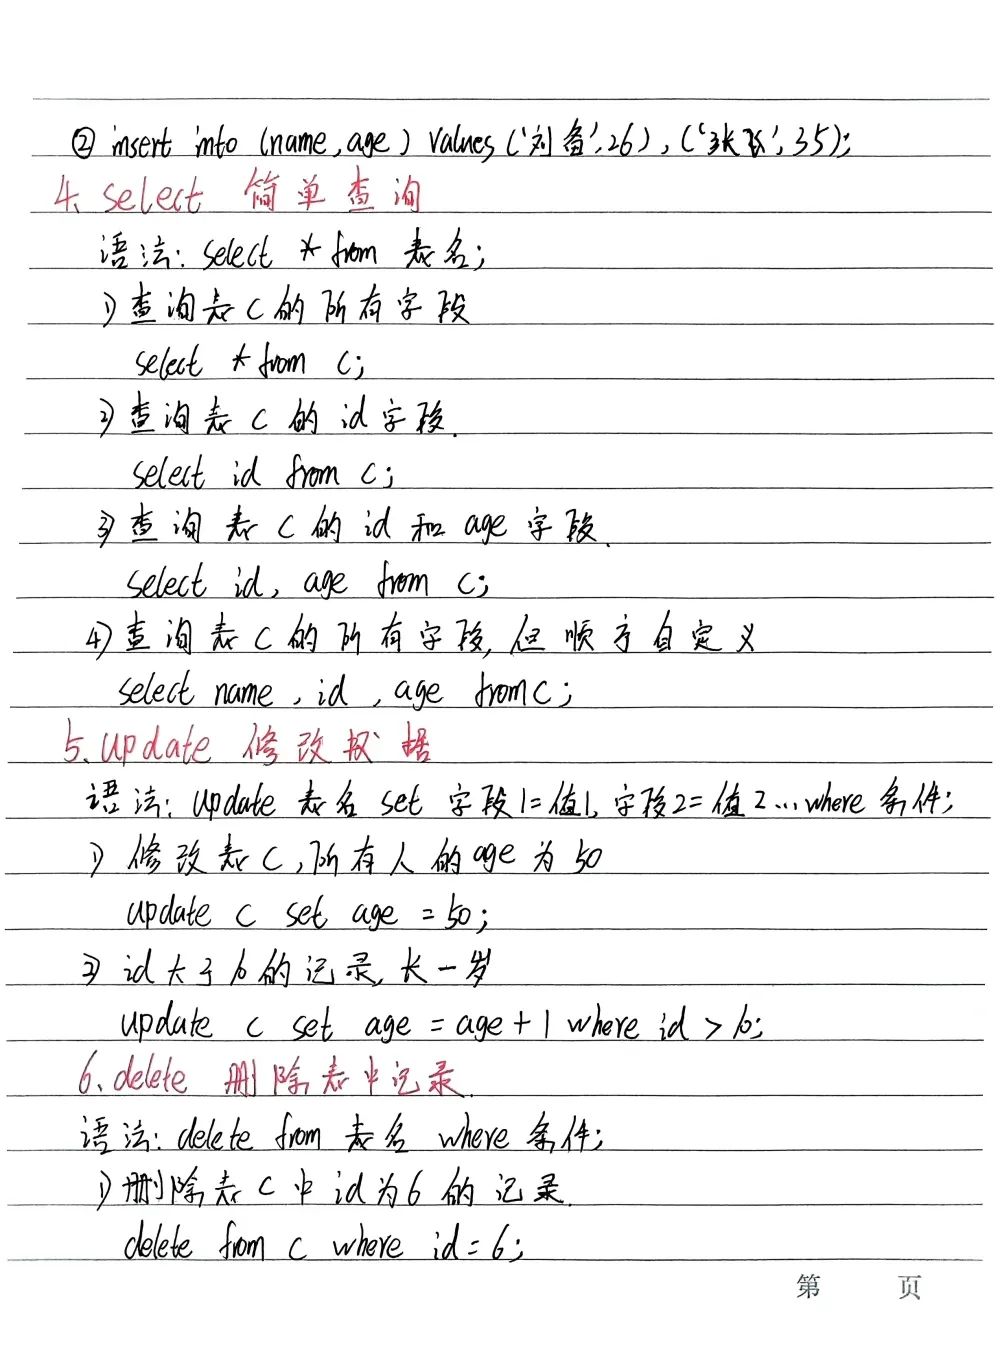 ② insert into (name,age) values('刘备',26),('张飞',35);
4、select 简单查询
语法:select * from 表名;
1)查询表c的所有字段
select * from c;
2)查询表c的id字段.
select id from c;
3)查询表c的id和age字段.
select id, age from c;
4)查询表c的所有字段,但顺序自定义
select name, id, age from c;
5、update 修改数据
语法:update 表名 set 字段1=值1,字段2=值2...where 条件;
1)修改表c,所有人的age为50
update c set age = 50;
2)id大于6的记录,长一岁
update c set age = age+1 where id > 6;
6、delete 删除表中记录.
语法:delete from 表名 where 条件;
1)删除表c中id为6的记录.
delete from c where id = 6;
第 页